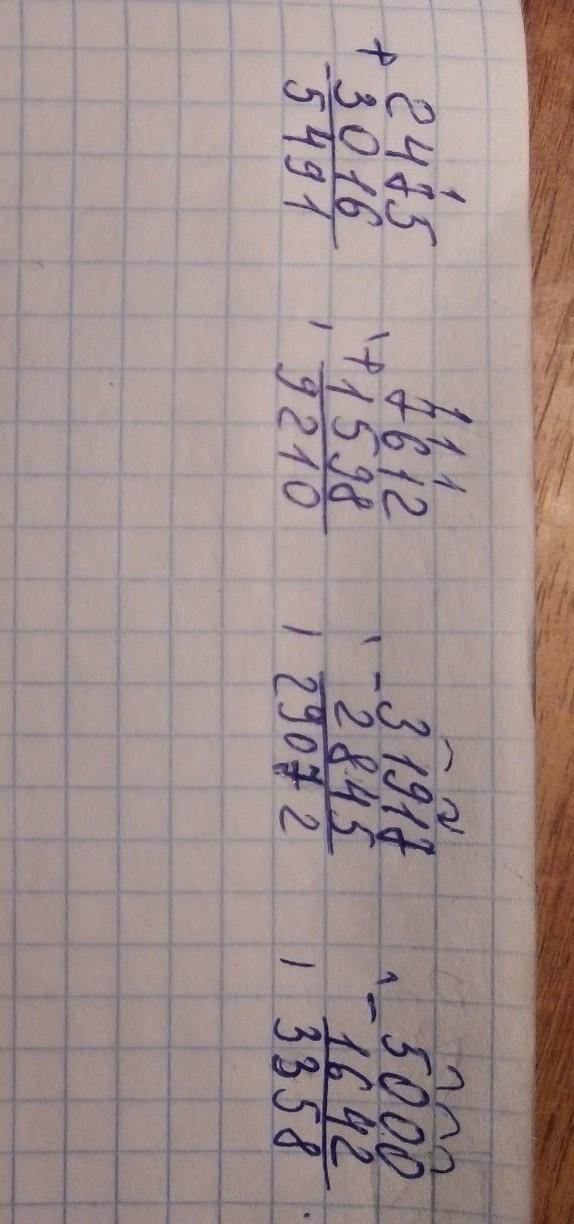 1
2475
+
3016
5491
1 1 1
7612
+
1598
9210
31917
-
2845
29072
5000
-
1642
3358